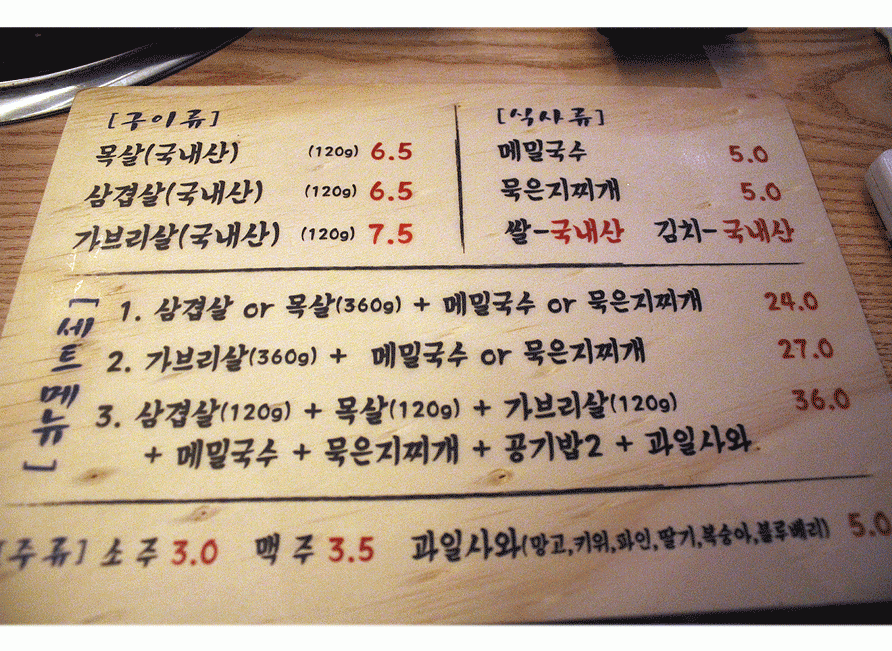 [구이류]
목살(국내산) (120g) 6.5
삼겹살(국내산) (120g) 6.5
가브리살(국내산) (120g) 7.5
[식사류]
메밀국수 5.0
묵은지찌개 5.0
쌀-국내산 김치-국내산
[세트메뉴]
1. 삼겹살 or 목살(360g) + 메밀국수 or 묵은지찌개 24.0
2. 가브리살(360g) + 메밀국수 or 묵은지찌개 27.0
3. 삼겹살(120g) + 목살(120g) + 가브리살(120g) 36.0
+ 메밀국수 + 묵은지찌개 + 공기밥2 + 과일사와
[주류] 소주 3.0 맥주 3.5 과일사와(망고,키위,파인,딸기,복숭아,블루베리) 5.0